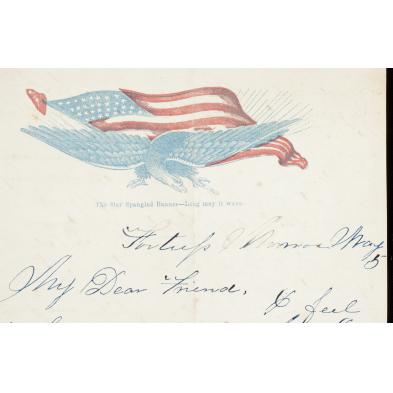 The Star Spangled Banner—Long may it wave.
Fortress Monroe May
5
My Dear Friend,
I feel